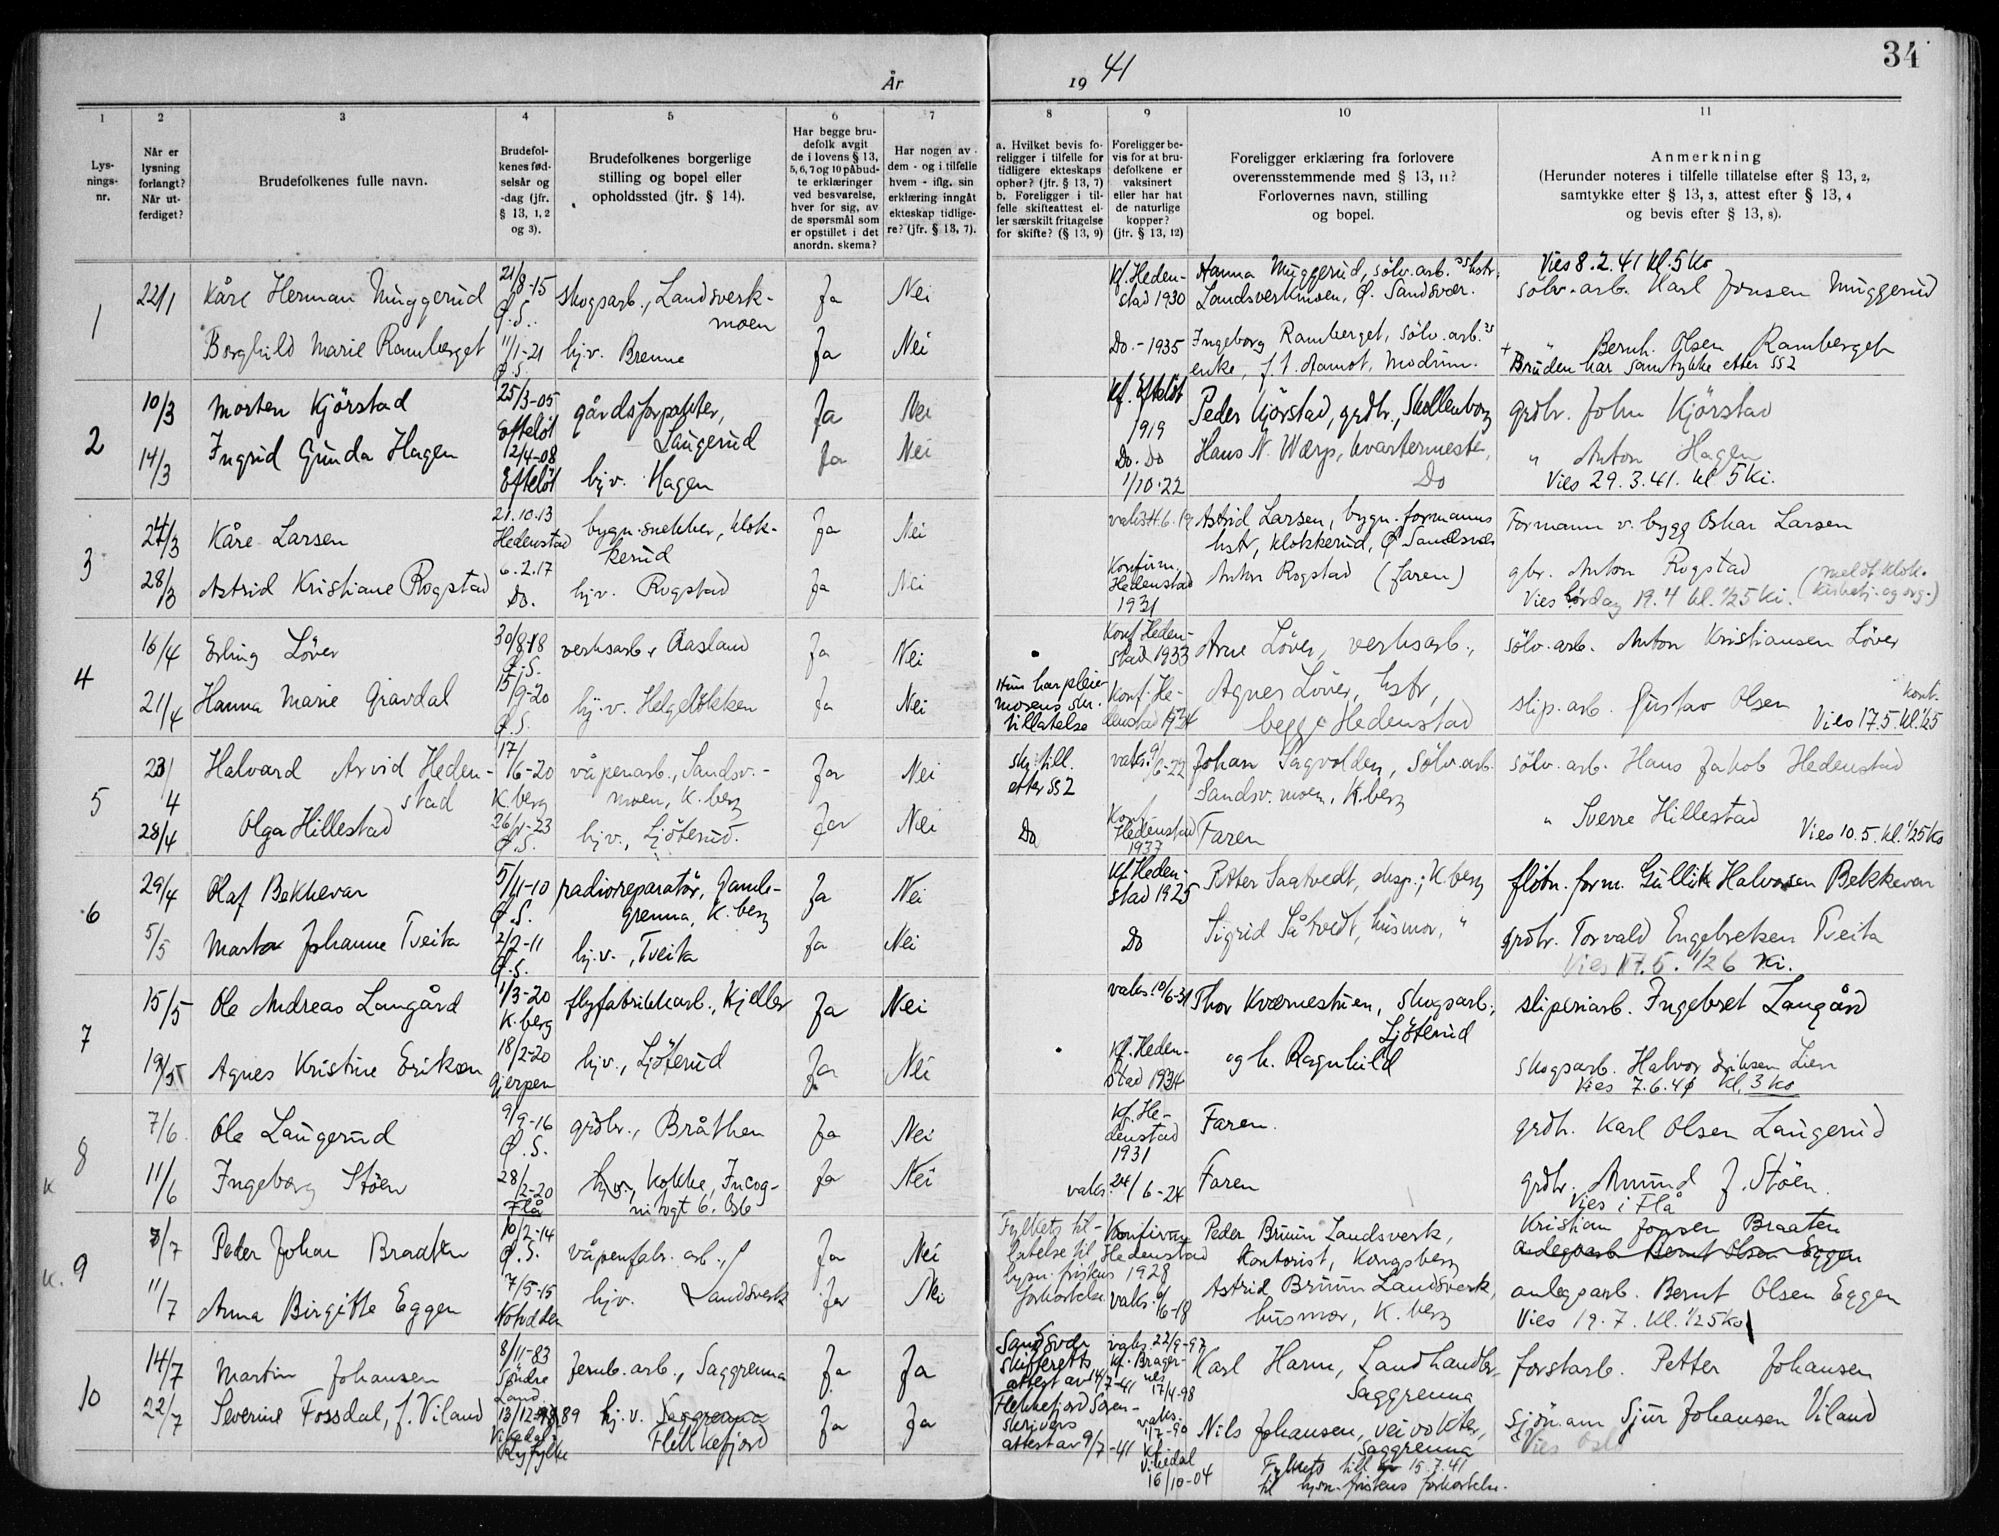 År
19 41
34
1
2
3
4
5
6
7
8
9
10
11
Lys-
nings-
nr.
Når er
lysning
forlangt?
Når ut-
ferdiget?
Brudefolkenes fulle navn.
Brudefol-
kenes fød-
selsår og
-dag (jfr.
§ 13, 1, 2
og 3).
Brudefolkenes borgerlige
stilling og bopel eller
opholdssted (jfr. § 14).
Har begge bru-
defolk avgit
de i lovens § 13,
5, 6, 7 og 10 påbud-
te erklæringer
ved besvarelse,
hver for sig, av
de spørsmål som
er opstillet i det
anordn. skema?
Har nogen av
dem - og i tilfelle
hvem - iflg. sin
erklæring inngått
ekteskap tidlige-
re? (jfr. § 13, 7).
a. Hvilket bevis fo-
religger i tilfelle for
tidligere ekteskaps
ophør? (jfr. § 13, 7)
b. Foreligger i til-
felle skifteattest el-
ler særskilt fritagelse
for skifte? (§ 13, 9)
Foreligger be-
vis for at bru-
defolkene er
vaksinert
eller har hat
de naturlige
kopper?
(jfr. § 13, 12)
Foreligger erklæring fra forlovere
overensstemmende med § 13, 11?
Forlovernes navn, stilling
og bopel.
Anmerkning
(Herunder noteres i tilfelle tillatelse efter § 13, 2,
samtykke efter § 13, 3, attest efter § 13, 4
og bevis efter § 13, 8).
1
22/1
Kåre Herman Muggerud
21/8-15
Ø.S.
skogsarb., Landsverk-
moen
Ja
Nei
Kf. Heden-
stad 1930
Hanna Muggerud, sølv.arb. hstr.
Landsverkmoen, Ø. Sandsvær.
Vies 8.2.41 kl. 5 Ko
sølv.arb. Karl Jonsen Muggerud
Borghild Marie Ramberget
11/1-21
Ø.S.
hj.v. Brenne
Ja
Nei
Do.- 1935
Ingeborg Ramberget, sølv.arb.
enke, f.t. Aamot, Modum.
" Bernh. Olsen Ramberget
+ Bruden har samtykke etter §§2
2
10/3
Morten Kjörstad
25/3-05
Efteløt
gårdsforpakter,
Laugerud
Ja
Nei
Kf. Efteløt
1919
Peder Kjörstad, grdbr., Skollenborg
grdbr. John Kjörstad
14/3
Ingrid Gunda Hagen
12/4-08
Efteløt
hj.v. Hagen
Ja
Nei
Do. Do
1/10-22
Hans N. Wærp, kvartermester,
Do
" Anton Hagen
Vies 29.3.41. kl 5 Ki.
3
24/3
Kåre Larsen
21.10.13
Hedenstad
bygn.snekker, Klok-
kerud
Ja
Nei
Astrid Larsen, bygn.formanns
hstr, Klokkerud, Ø Sandsvær
Formann v. bygg Oskar Larsen
28/3
Astrid Kristiane Rogstad
6.2.17
Do.
hj.v. Rogstad
Ja
Nei
Konfirm.
Hedenstad
1931
Anton Rogstad (faren)
gbr. Anton Rogstad
Vies Lørdag 19.4 kl. 1/2 5 Ki.
(meldt klok.
kirkebetj. og org.)
4
16/4
Erling Löver
30/8-18
Ø.S.
verksarb., Aasland
Ja
Nei
Konf Heden-
stad 1933
Arne Löver, verksarb.,
sölv.arb. Anton Kristiansen Löver
21/4
Hanna Marie Gravdal
15/9-20
Ø.S.
hj.v. Helgeløkken
Ja
Nei
Hun har pleie-
morens sin
tillatelse
Konf. He-
denstad 1934
Agnes Löver, hstr,
begge Hedenstad
slip.arb. Gustav Olsen
Vies 17.5. kl. 1/2 5
5
23/4
Halvard Arvid Heden-
stad
17/6-20
K.berg
våpenarb., Sandsv.-
moen, K.berg
Ja
Nei
skr. till.
etter §§2
vaks. 9/6-22
Johan Sagvolden, Sölv.arb.
Sandsv.moen, K.berg
sölv.arb. Hans Jakob Hedenstad
28/4
Olga Hillestad
26/1-23
Ø.S.
hj.v., Ljöterud.
Ja
Nei
Do
Konf.
Hedenstad
1937
Faren
" Sverre Hillestad
Vies 10.5. kl. 1/2 5 Ko
6
29/4
Olaf Bekkevar
5/11-10
Ø.S.
radioreparatør, Gamle-
grenna, K.berg
Ja
Nei
Kf. Heden-
stad 1925
Petter Saatvedt, disp., K.berg
fløtn.form. Gullik Halvorsen Bekkevar
5/5
Marta Johanne Tveita
2/2-11
Ø.S.
hj.v., Tveita
Ja
Nei
Do
Sigrid Såtvedt, husmor, "
grdbr. Torvald Engebretsen Tveita
Vies 17.5. 1/2 6 Ki.
7
15/5
Ole Andreas Langård
1/3-20
K.berg
flyfabrikkarb., Kjeller
Ja
Nei
vaks. 10/6-31
Thor Kværnestuen, Skogsarb.,
Ljöterud
sliperiarb. Ingebret Langård
19/5
Agnes Kristine Eriksen
18/2-20
Gjerpen
hj.v., Ljöterud
Ja
Nei
Kf. Heden-
stad 1934
og h. Ragnhild
skogsarb. Halvor Eriksen Lien
Vies 7.6.41 Kl. 3 Ko
8
7/6
Ole Laugerud
9/9-16
Ø.S.
grdbr., Bråthen
Ja
Nei
Kf. He-
denstad
1931
Faren.
grdb. Karl Olsen Laugerud
K
11/6
Ingeborg Stöen
28/2-20
Flå
hj.v., Kokke, Incog-
nitogt 6. Oslo
Ja
Nei
vaks. 24/6-24
Faren
grdbr. Amund J. Stöen.
Vies i Flå
9
K.
8/7
Peder Johan Braaten
10/2-14
Ø.S.
våpenfabr.arb.,
Ja
Nei
Fylkets til-
latelse til
lysn. fristens
forkortelse
Konfirm
Hedenstad
1928
Peder Bruun Landsverk,
Kontorist, Kongsberg
Kristian Jonsen Braaten
anlegsarb Bernt Olsen Eggen
11/7
Anna Birgitte Eggen
7/5-15
Notodden
hj.v. Landsverk
Ja
Nei
vaks. 6/6-18
Astrid Bruun Landsverk,
husmor, K.berg
anlegsarb. Bernt Olsen Eggen
Vies 19.7. kl. 1/2 5 Ko
10
14/7
Martin Johansen
8/11-83
Søndre
Land
Jernb.arb., Saggrenna
Ja
Ja
Sandsvær
skifteretts
attest av 14/7-41
vaks. 22/9-97
Kf. Brager-
nes
17/4-98
Karl Harm, Landhandler,
Saggrenna
forstarb. Petter Johansen
22/7
Severine Fossdal, f. Viland
13/12-89
Vikedal
Ryfylke
hj.v. Saggrenna
Flekkefjord
Ja
Ja
Flekkefjord Soren-
skrivers
attest av 9/7-41
vaks.
1/7-90
Kf.
Vikedal
16/10-04
Nils Johansen, veivokter,
Saggrenna
Fylkets till 15.7.41
til lysn.fristens forkortelse.
sjöm.ann Sjur Johansen Viland
Vies Oslo